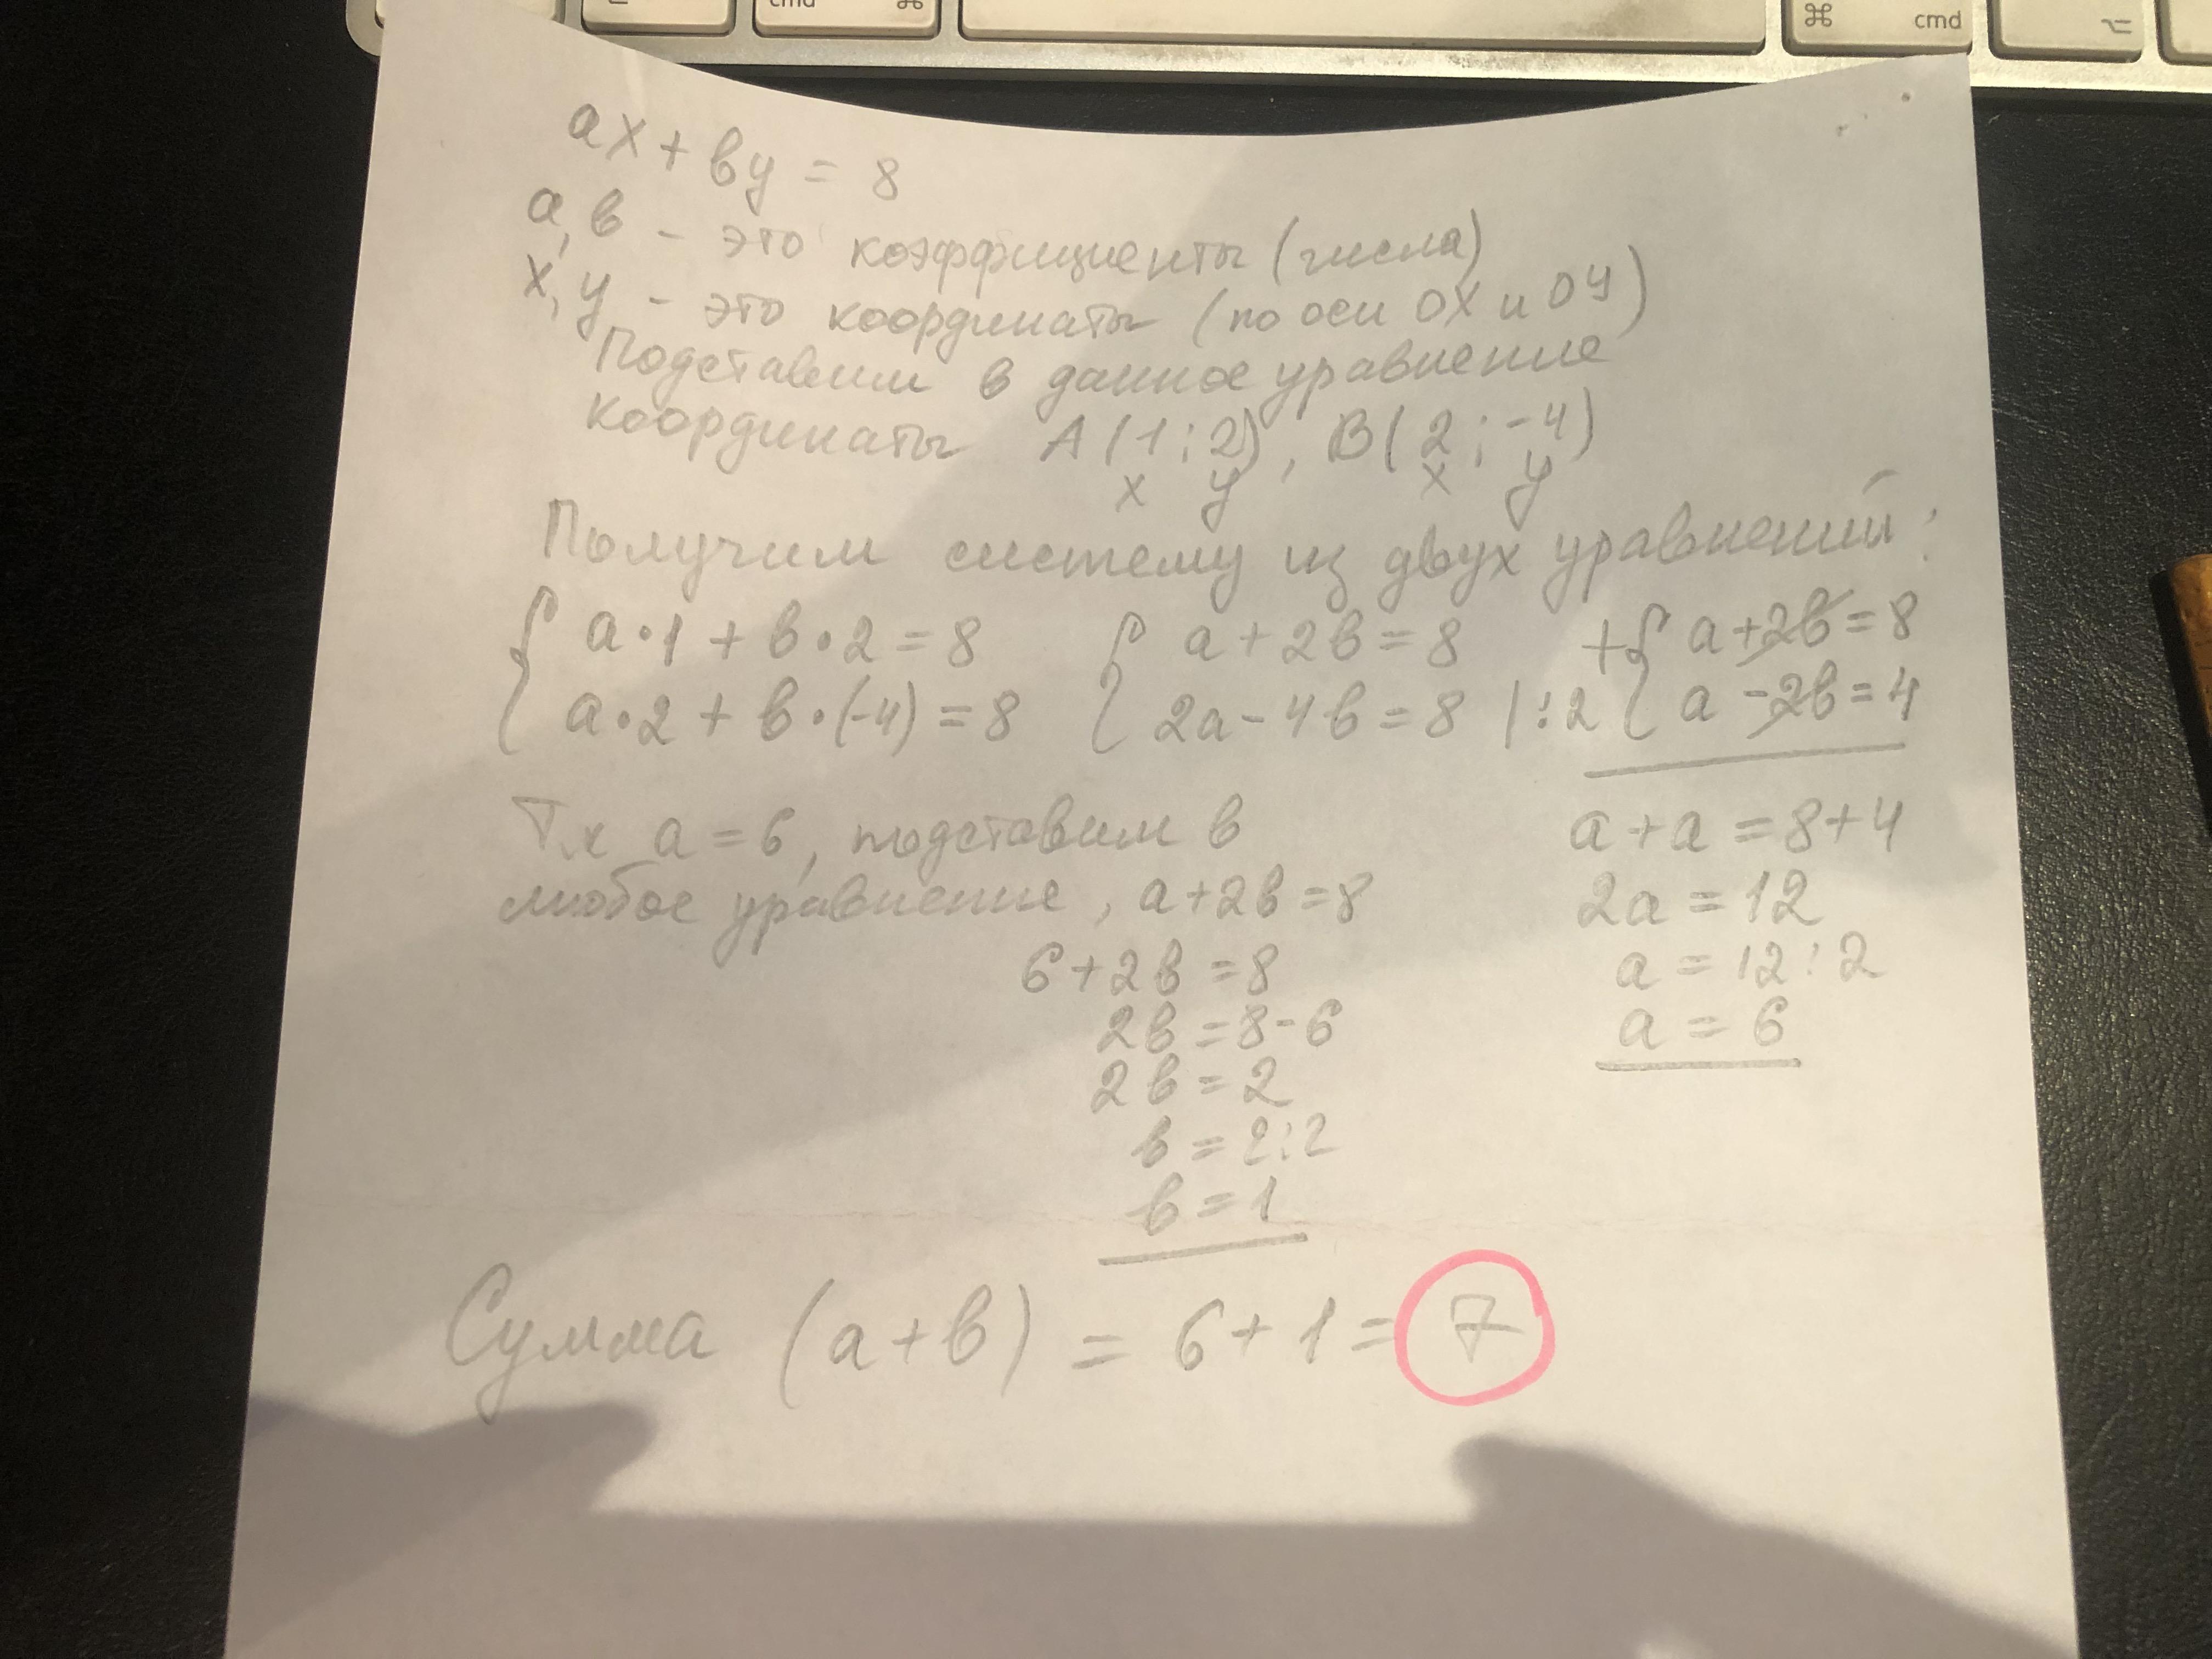 cmd ⌘ ⌘ cmd ⌥
ax + by = 8
a, b - это коэффициенты (числа)
x, y - это координаты (по оси OX и OY)
Подставим в данное уравнение
координаты A(1; 2), B(2; -4)
x y x y
Получим систему из двух уравнений:
{ a·1 + b·2 = 8 { a + 2b = 8 +{ a + 2b = 8
{ a·2 + b·(-4) = 8 { 2a - 4b = 8 |:2 { a - 2b = 4
Т.к a = 6, подставим в a + a = 8 + 4
любое уравнение, a + 2b = 8 2a = 12
6 + 2b = 8 a = 12 : 2
2b = 8 - 6 a = 6
2b = 2
b = 2:2
b = 1
Сумма (a + b) = 6 + 1 = 7